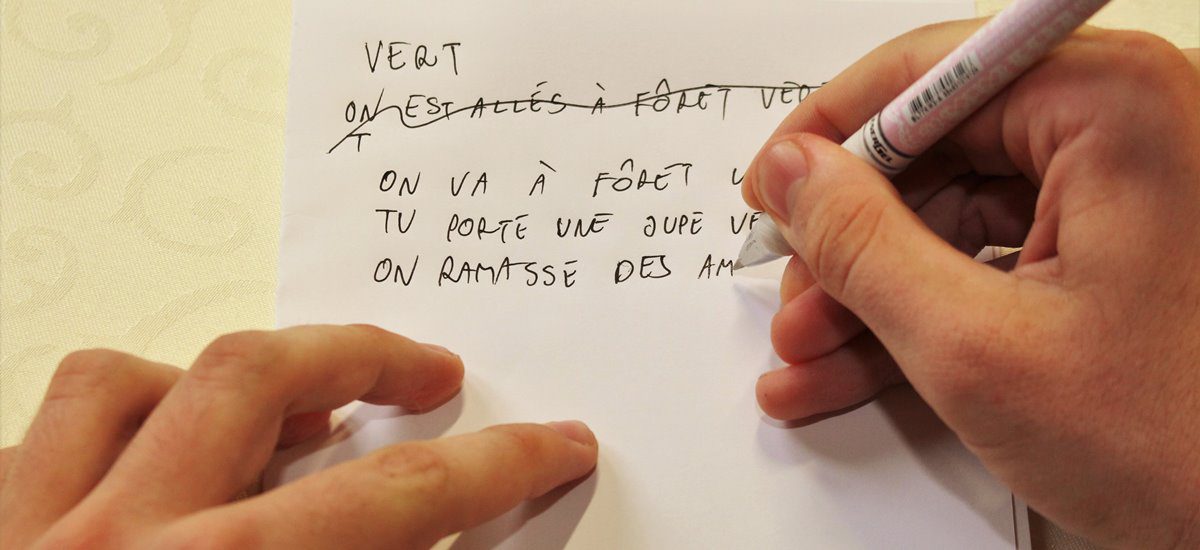 VERT
ON EST ALLÉS À FÔRET VERT
T
ON VA À FÔRET
TU PORTE UNE JUPE VE
ON RAMASSE DES AM